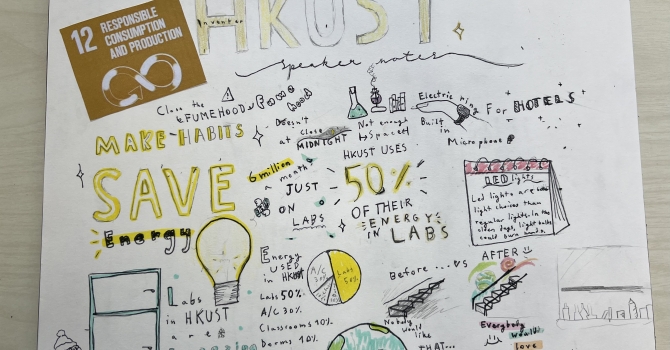 12 RESPONSIBLE
CONSUMPTION
AND PRODUCTION
HKUST
Inventor
speaker notes
Close the
FUMEHOOD
Fume hood
MAKE HABITS
Doesn't
close
at MIDNIGHT
Not enough
Space
Electric ring
Built
in
Microphone
For HOTELS
SAVE
Energy
6 million
a month
JUST
ON
LABS
HKUST USES
50%
OF THEIR
ENERGY
IN LABS
LED lights
Led lights are
light choices than
regular lights. In the
olden days, light bulbs
could burn
Energy
USED
in HKUST
Labs 50%
A/C 30%
Classrooms 10%
Dorms 10%
A/C
30%
Labs
50%
Labs
in HKUST
are
Before ... vs
AFTER
Nobody
would
like
THAT...
Everybody
would
love